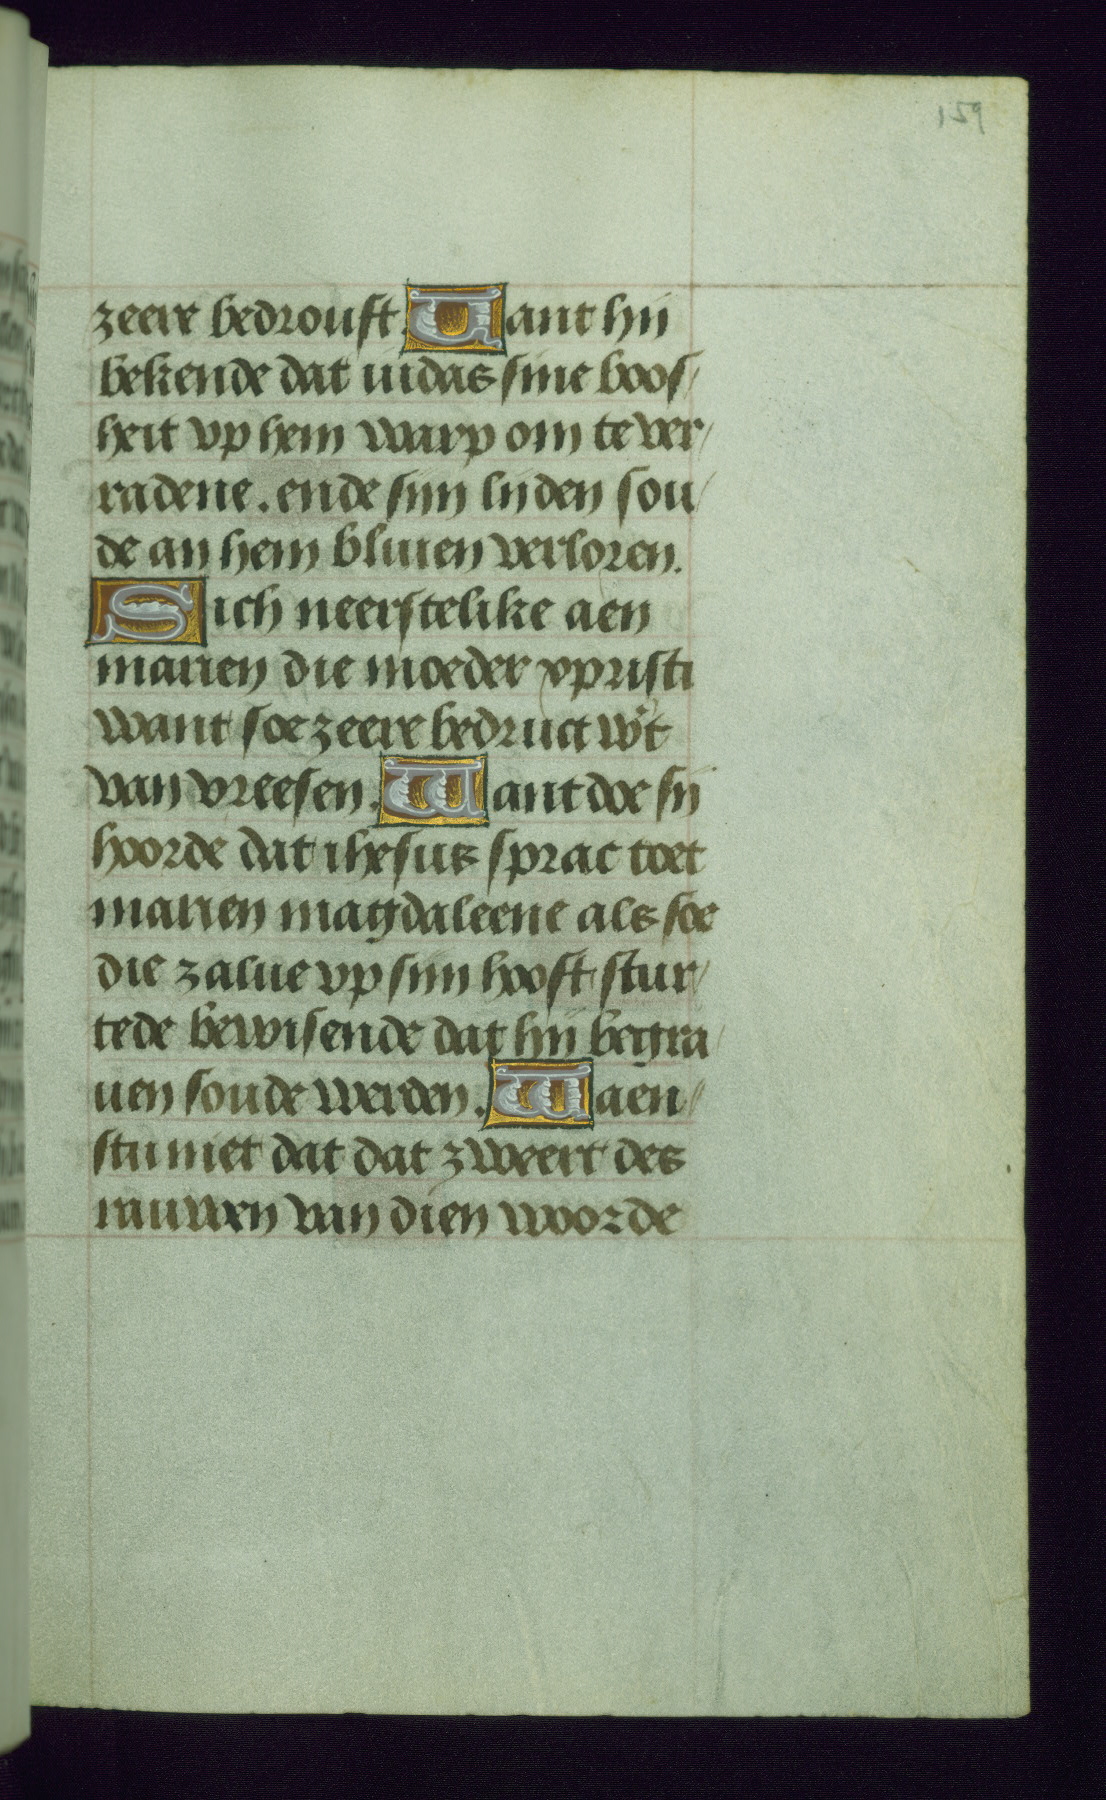 159
zeere bedrouft. Want hij
bekende dat iudas sine boos/
heit vp hem warp om te ver/
radene. ende sijn lijden sou/
de an hem bliuen verloren.
Sich neerstelike aen
marien die moeder xpristi
want soe zeere bedruct wt
van vreesen. Want doe sij
hoorde dat ihesus sprac toet
marien magdaleene als soe
die zalue vp sijn hooft stur/
tede bewisende dat hij begra/
uen soude werden. Waen/
stu niet dat dat zweert des
rauwen van dien woorde